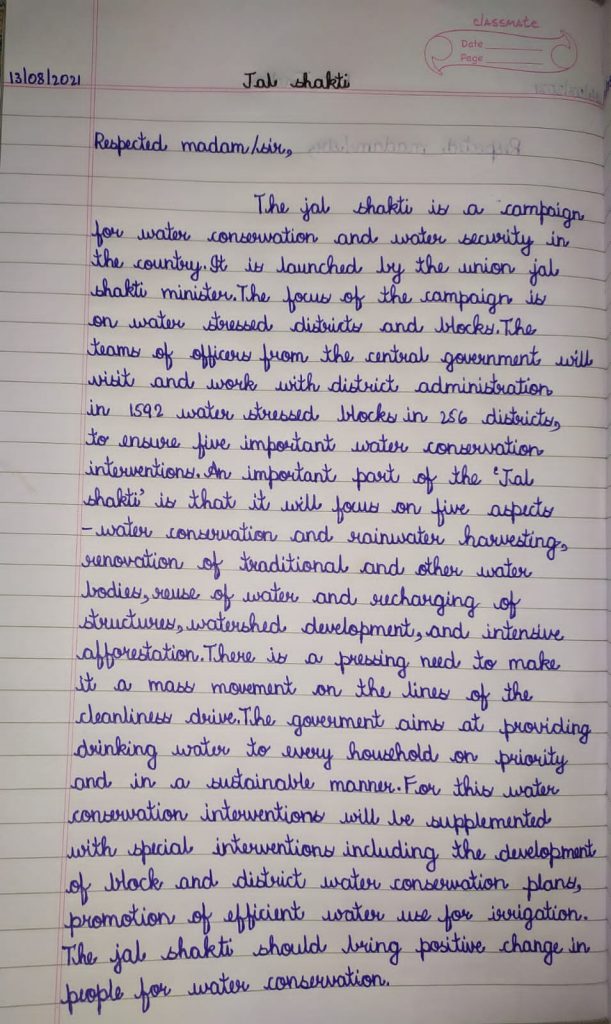 classmate
Date
Page
13/08/2021 Jal shakti
Respected madam/sir,
The jal shakti is a campaign
for water conservation and water security in
the country. It is launched by the union jal
shakti minister. The focus of the campaign is
on water stressed districts and blocks. The
teams of officers from the central government will
visit and work with district administration
in 1592 water stressed blocks in 256 districts,
to ensure five important water conservation
interventions. An important part of the 'Jal
shakti' is that it will focus on five aspects
-water conservation and rainwater harvesting,
renovation of traditional and other water
bodies, reuse of water and recharging of
structures, watershed development, and intensive
afforestation. There is a pressing need to make
it a mass movement on the lines of the
cleanliness drive. The goverment aims at providing
drinking water to every household on priority
and in a sustainable manner. For this water
conservation interventions will be supplemented
with special interventions including the development
of block and district water conservation plans,
promotion of efficient water use for irrigation.
The jal shakti should bring positive change in
people for water conservation.